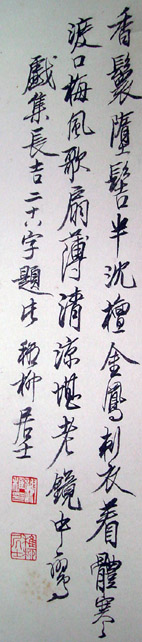 香鬟墮髻半沈檀金鳳刺衣着體寒
渡口梅風歌扇薄清涼堪老鏡中鸞
戲集長吉二十八字題此稚柳居士